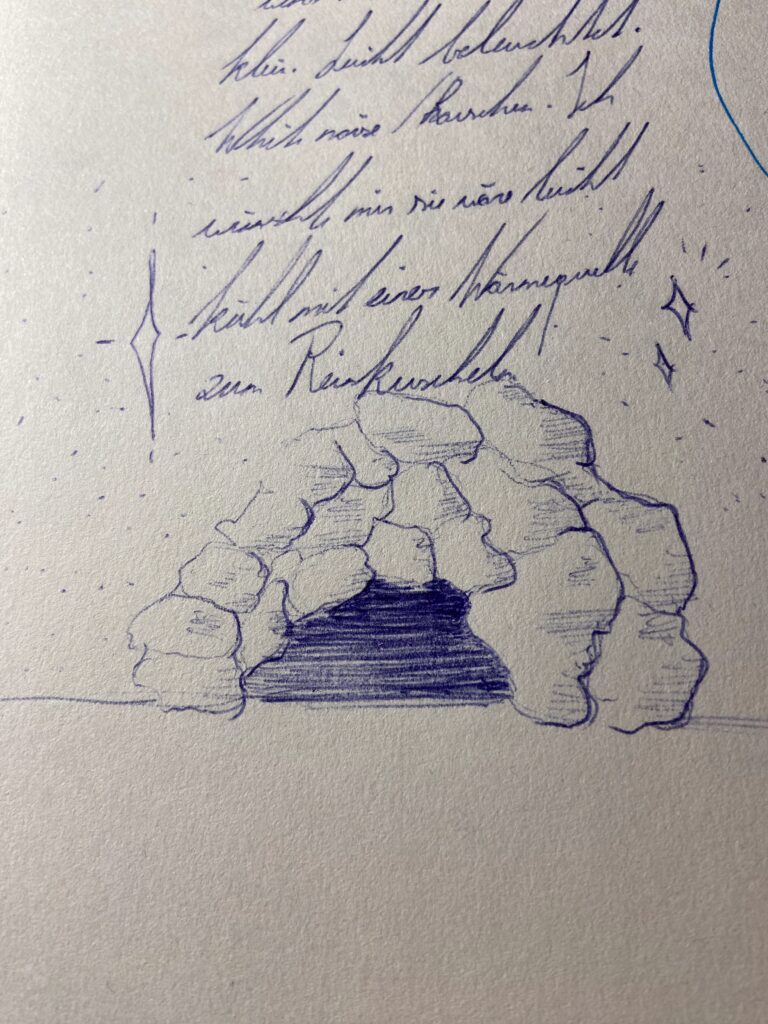 klein. Leicht beleuchtet.
White noise / Rauschen. Ich
wünschte mir sie wäre leicht
kühl mit einer Wärmequelle
zum Reinkuscheln